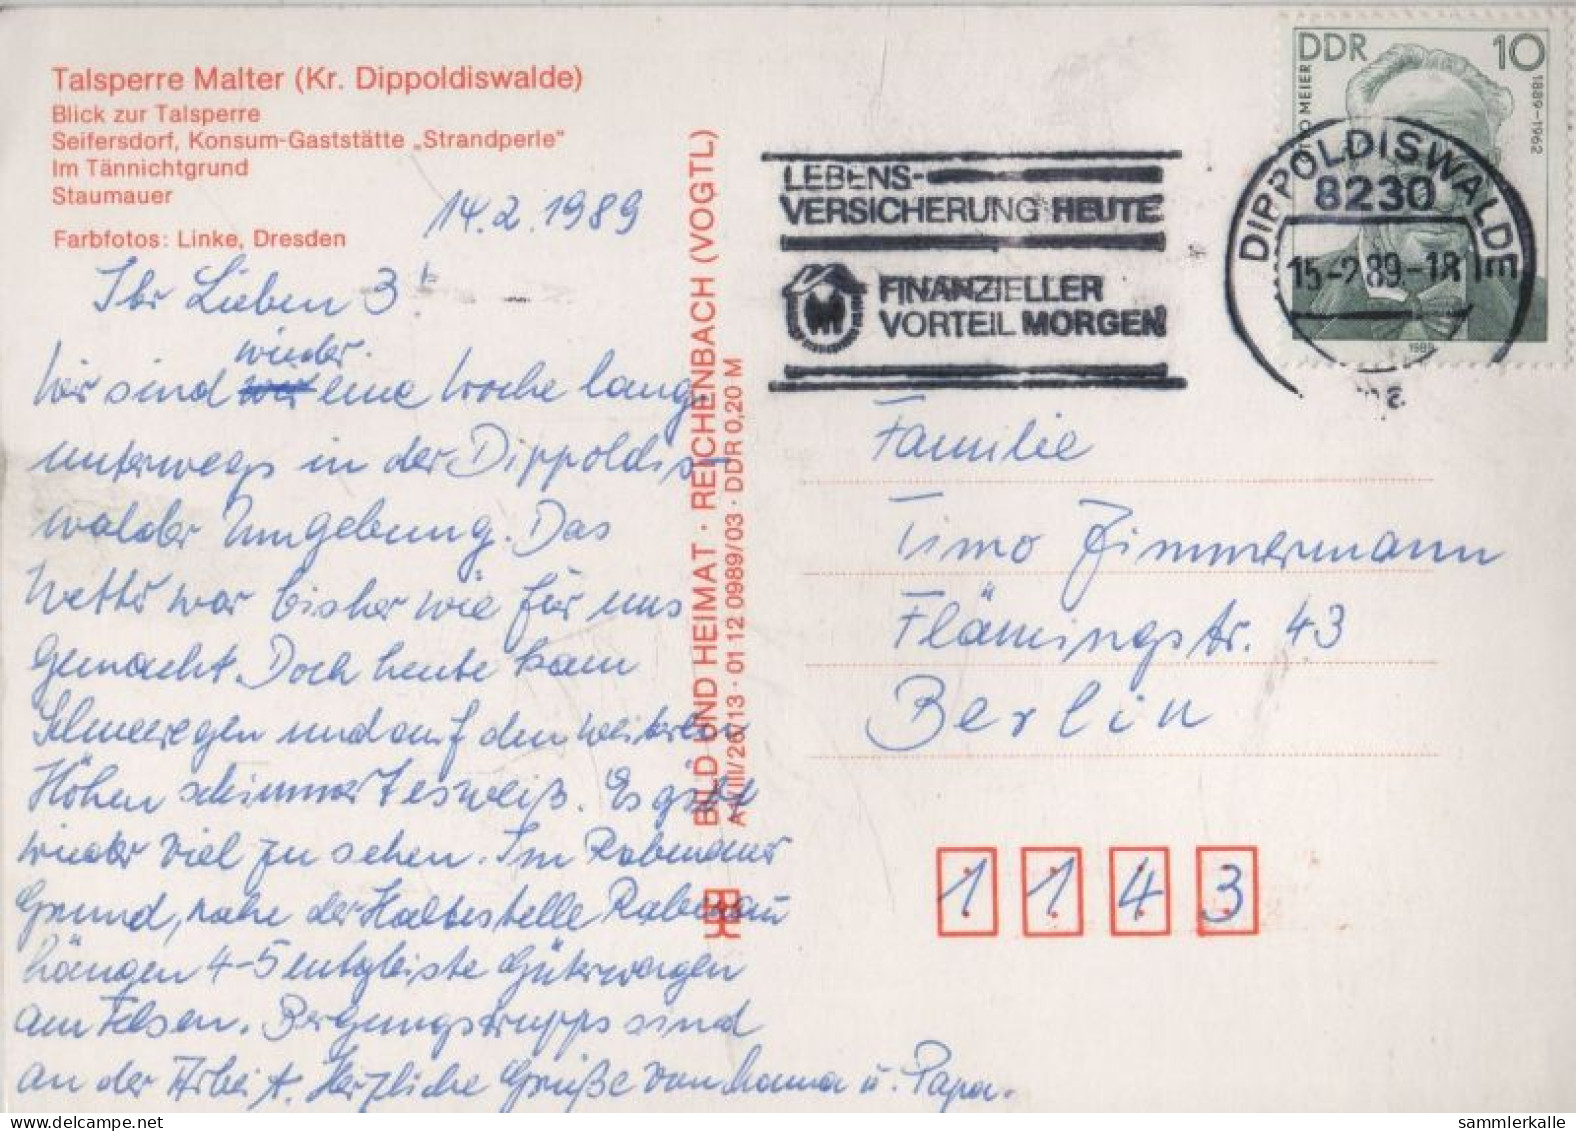 Talsperre Malter (Kr. Dippoldiswalde)
Blick zur Talsperre
Seifersdorf, Konsum-Gaststätte „Strandperle"
Im Tännichtgrund
Staumauer
Farbfotos: Linke, Dresden
14.2.1989
Ihr Lieben 3
wieder
Wir sind eine Woche lang
unterwegs in der Dippoldis-
walder Umgebung. Das
Wetter war bisher wie für uns
gemacht. Doch heute kam
Schneeregen und auf den weiteren
Höhen schimmert es weiß. Es gibt
wieder viel zu sehen. Im Rabenauer
Grund, nahe der Haltestelle Rabenau
hängen 4-5 entgleiste Güterwagen
am Felsen. Bergungstrupps sind
an der Arbeit. Herzliche Grüße von Mama u. Papa.
BILD UND HEIMAT · REICHENBACH (VOGTL)
A1/III/26/13 · 01 12 0989/03 · DDR 0,20 M
LEBENS-
VERSICHERUNG HEUTE
FINANZIELLER
VORTEIL MORGEN
DIPPOLDISWALDE
8230
15-2.89-18
DDR 10
OTTO MEIER
1889-1962
1989
Familie
Timo Zimmermann
Flämingstr. 43
Berlin
1 1 4 3
sammlerkalle